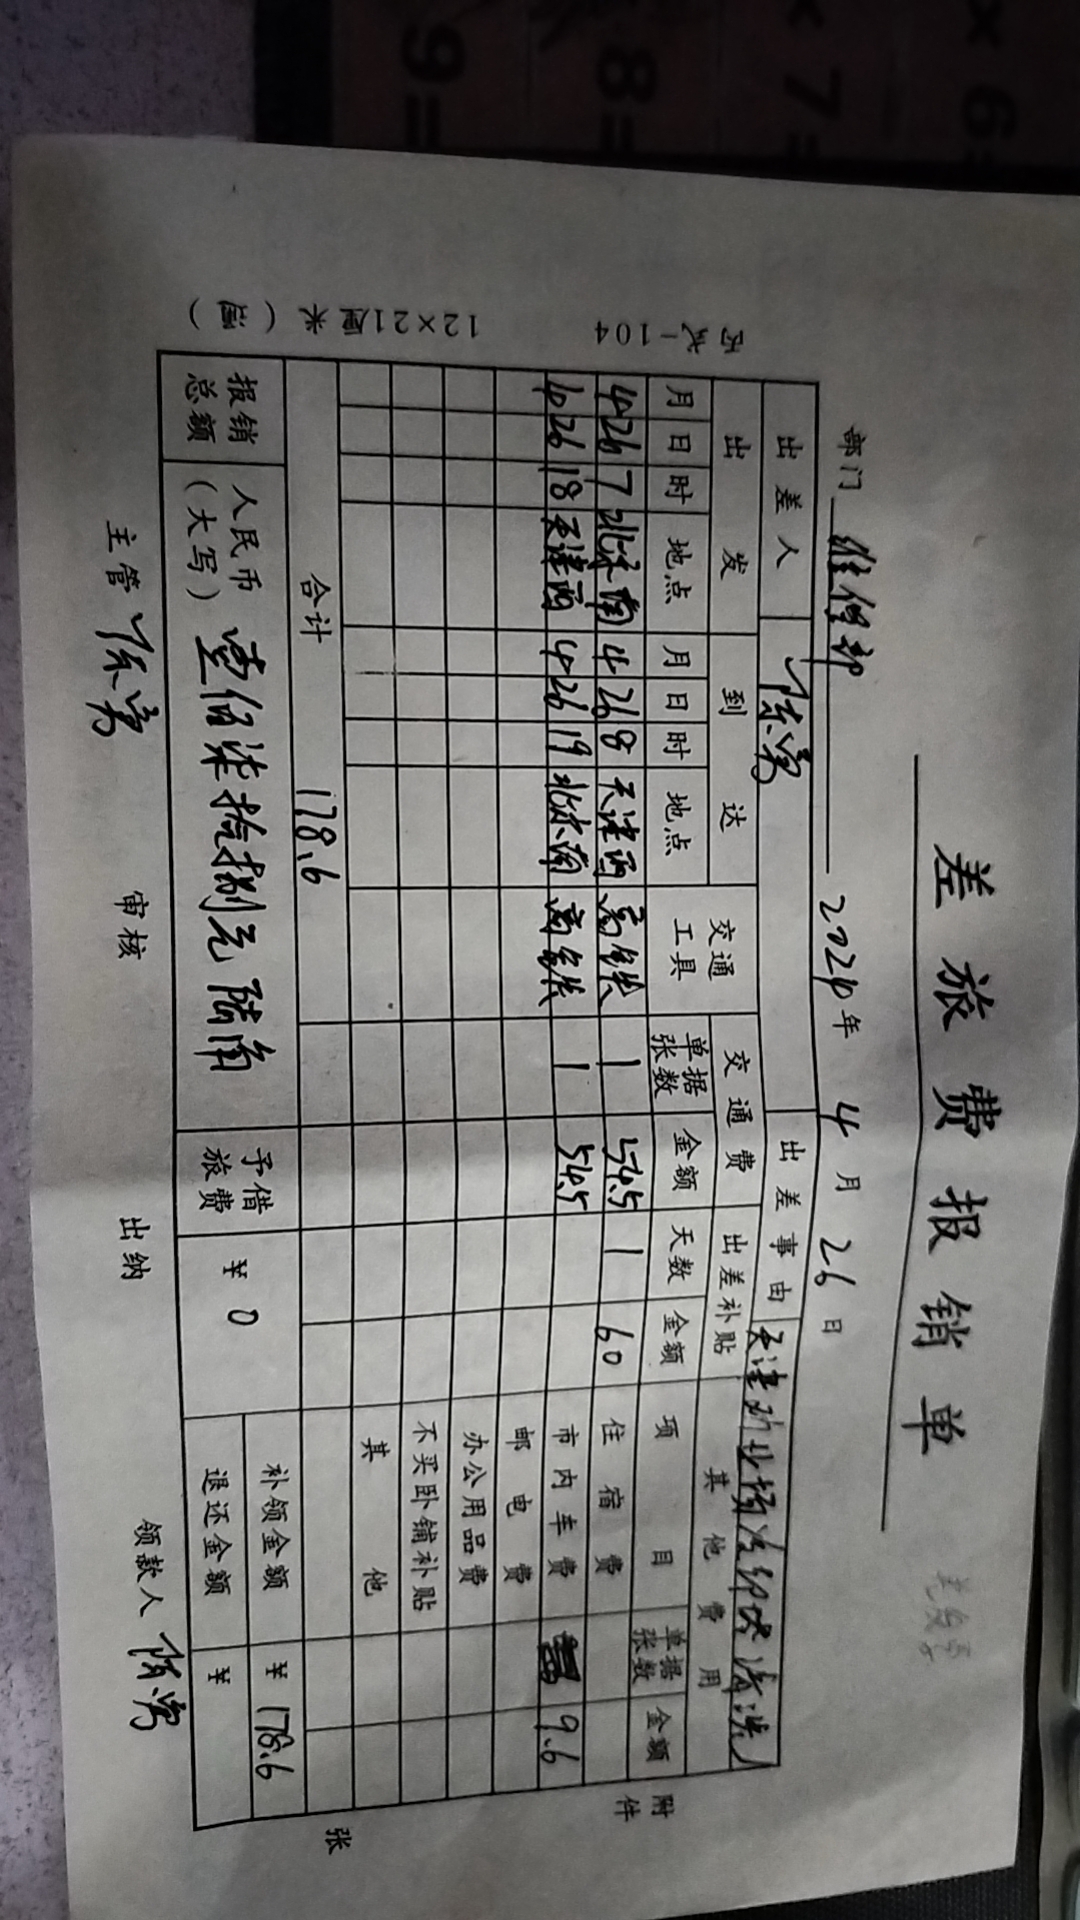 差旅费报销单
部门 维保部 2024年 4月 26日
出差人 陈勇 出差事由
出发 到达 交通工具 交通费 出差补贴 其他费用
月 日 时 地点 月 日 时 地点 单据张数 金额 天数 金额 项目 单据张数 金额
4 26 7 北京南 4 26 8 天津西 高铁 1 54.5 1 60 住宿费
4 26 18 天津西 4 26 19 北京南 高铁 1 54.5 市内车费 9.6
邮电费
办公用品费
不买卧铺补贴
其他
合计 178.6
报销总额 人民币(大写) 壹佰柒拾捌元陆角 予借旅费 ¥ 0 补领金额 ¥ 178.6
退还金额 ¥
主管 陈勇 审核 出纳 领款人 陈勇
附件
张
丙式-104 12×21厘米
× 6=
× 7=
8=
9=